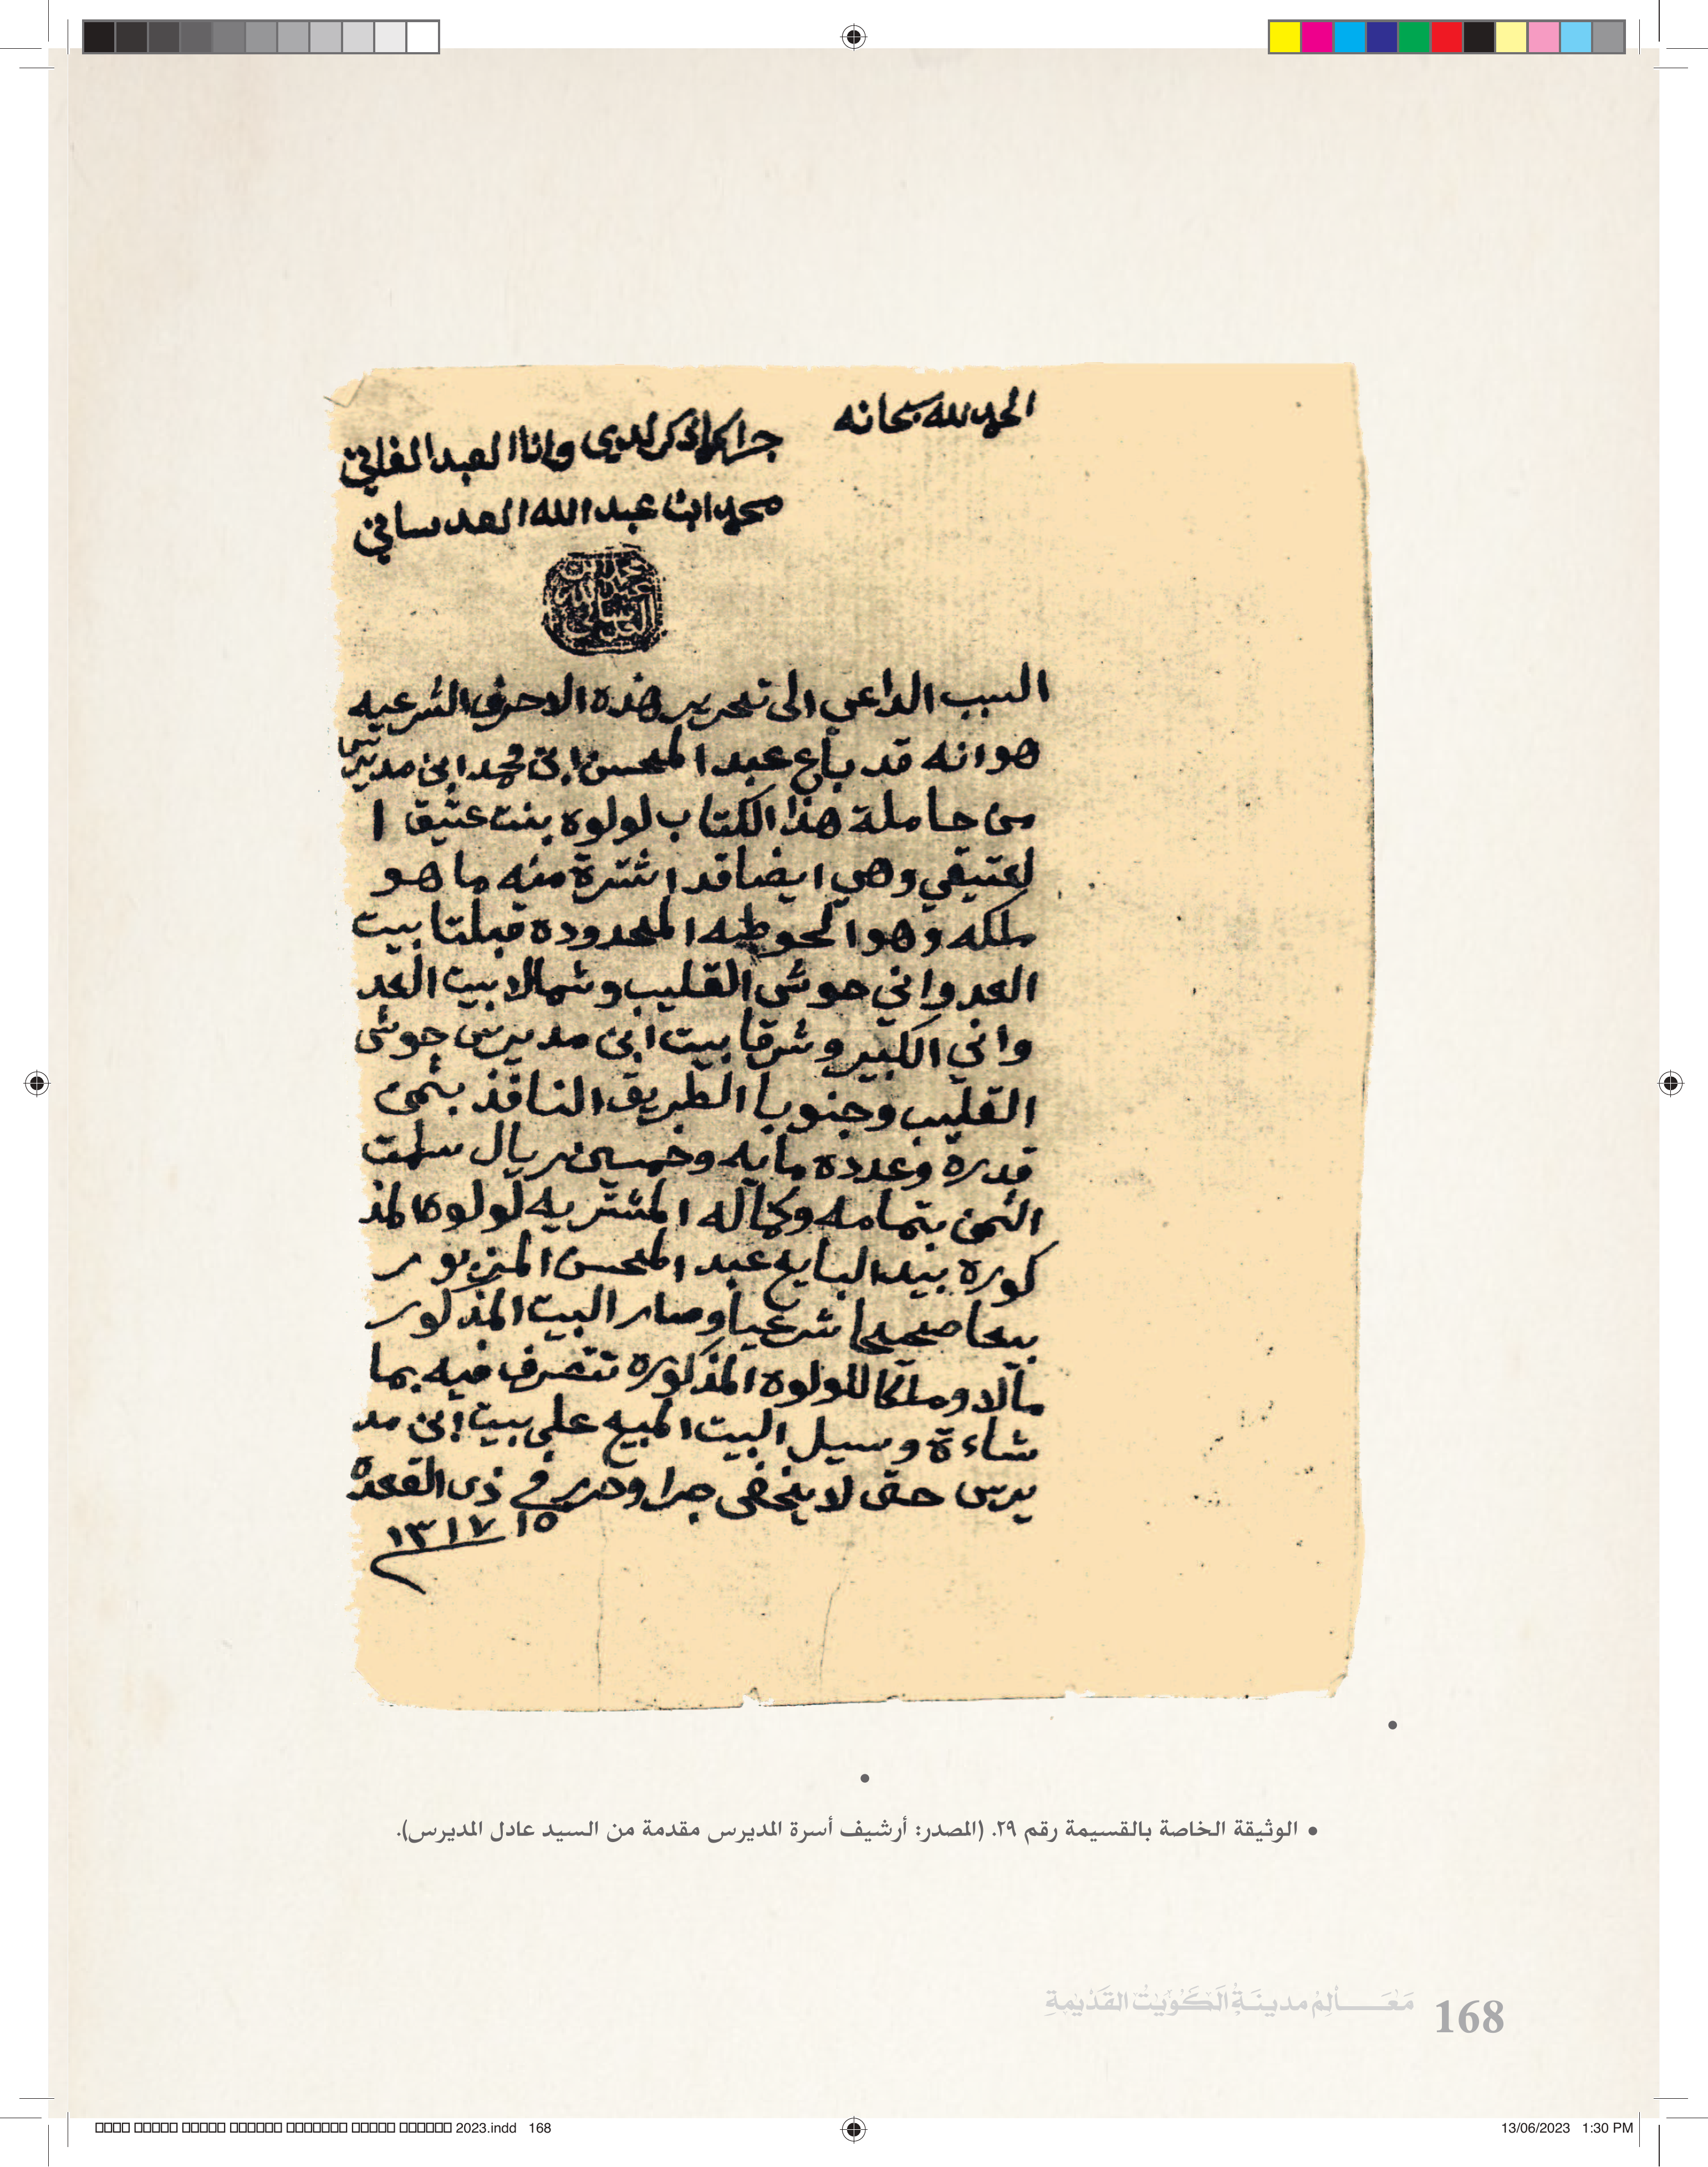 الحمد لله سبحانه
جرا كما ذكر لدي وانا العبد الفاني
محمد ابن عبد الله العدساني
السبب الداعي الى تحرير هذه الاحرف الشرعيه
هو انه قد باع عبد المحسن ابن محمد ابن مديرس
من حاملة هذا الكتاب لولوه بنت عتيق ا
لعتيقي وهي ايضا قد اشترة منه ما هو
ملكه وهو الحوطه المحدوده قبلتا بيت
العدواني حوش القليب وشمالا بيت العد
واني الكبير وشرقا بيت ابن مديرس حوش
القليب وجنوبا الطريق النافذ بثمن
قدره وعدده مايه وخمسين ريال سلمت
الثمن بتمامه وكماله المشتريه لولوه المذ
كوره بيد البايع عبد المحسن المزبور
بيعا صحيحا شرعيا وصار البيت المذكور
مالا وملكا للولوه المذكوره تتصرف فيه بما
شاءة وسيل البيت المبيع على بيت ابن مد
يرس حتى لا يخفى جرا وحرر في ذي القعده
١٥ ١٣١٧
• الوثيقة الخاصة بالقسيمة رقم ٢٩. (المصدر: أرشيف أسرة المديرس مقدمة من السيد عادل المديرس).
168 مَعَالِمُ مدينَةِ الكُوَيْتِ القَدِيمَةِ
2023.indd 168
13/06/2023 1:30 PM